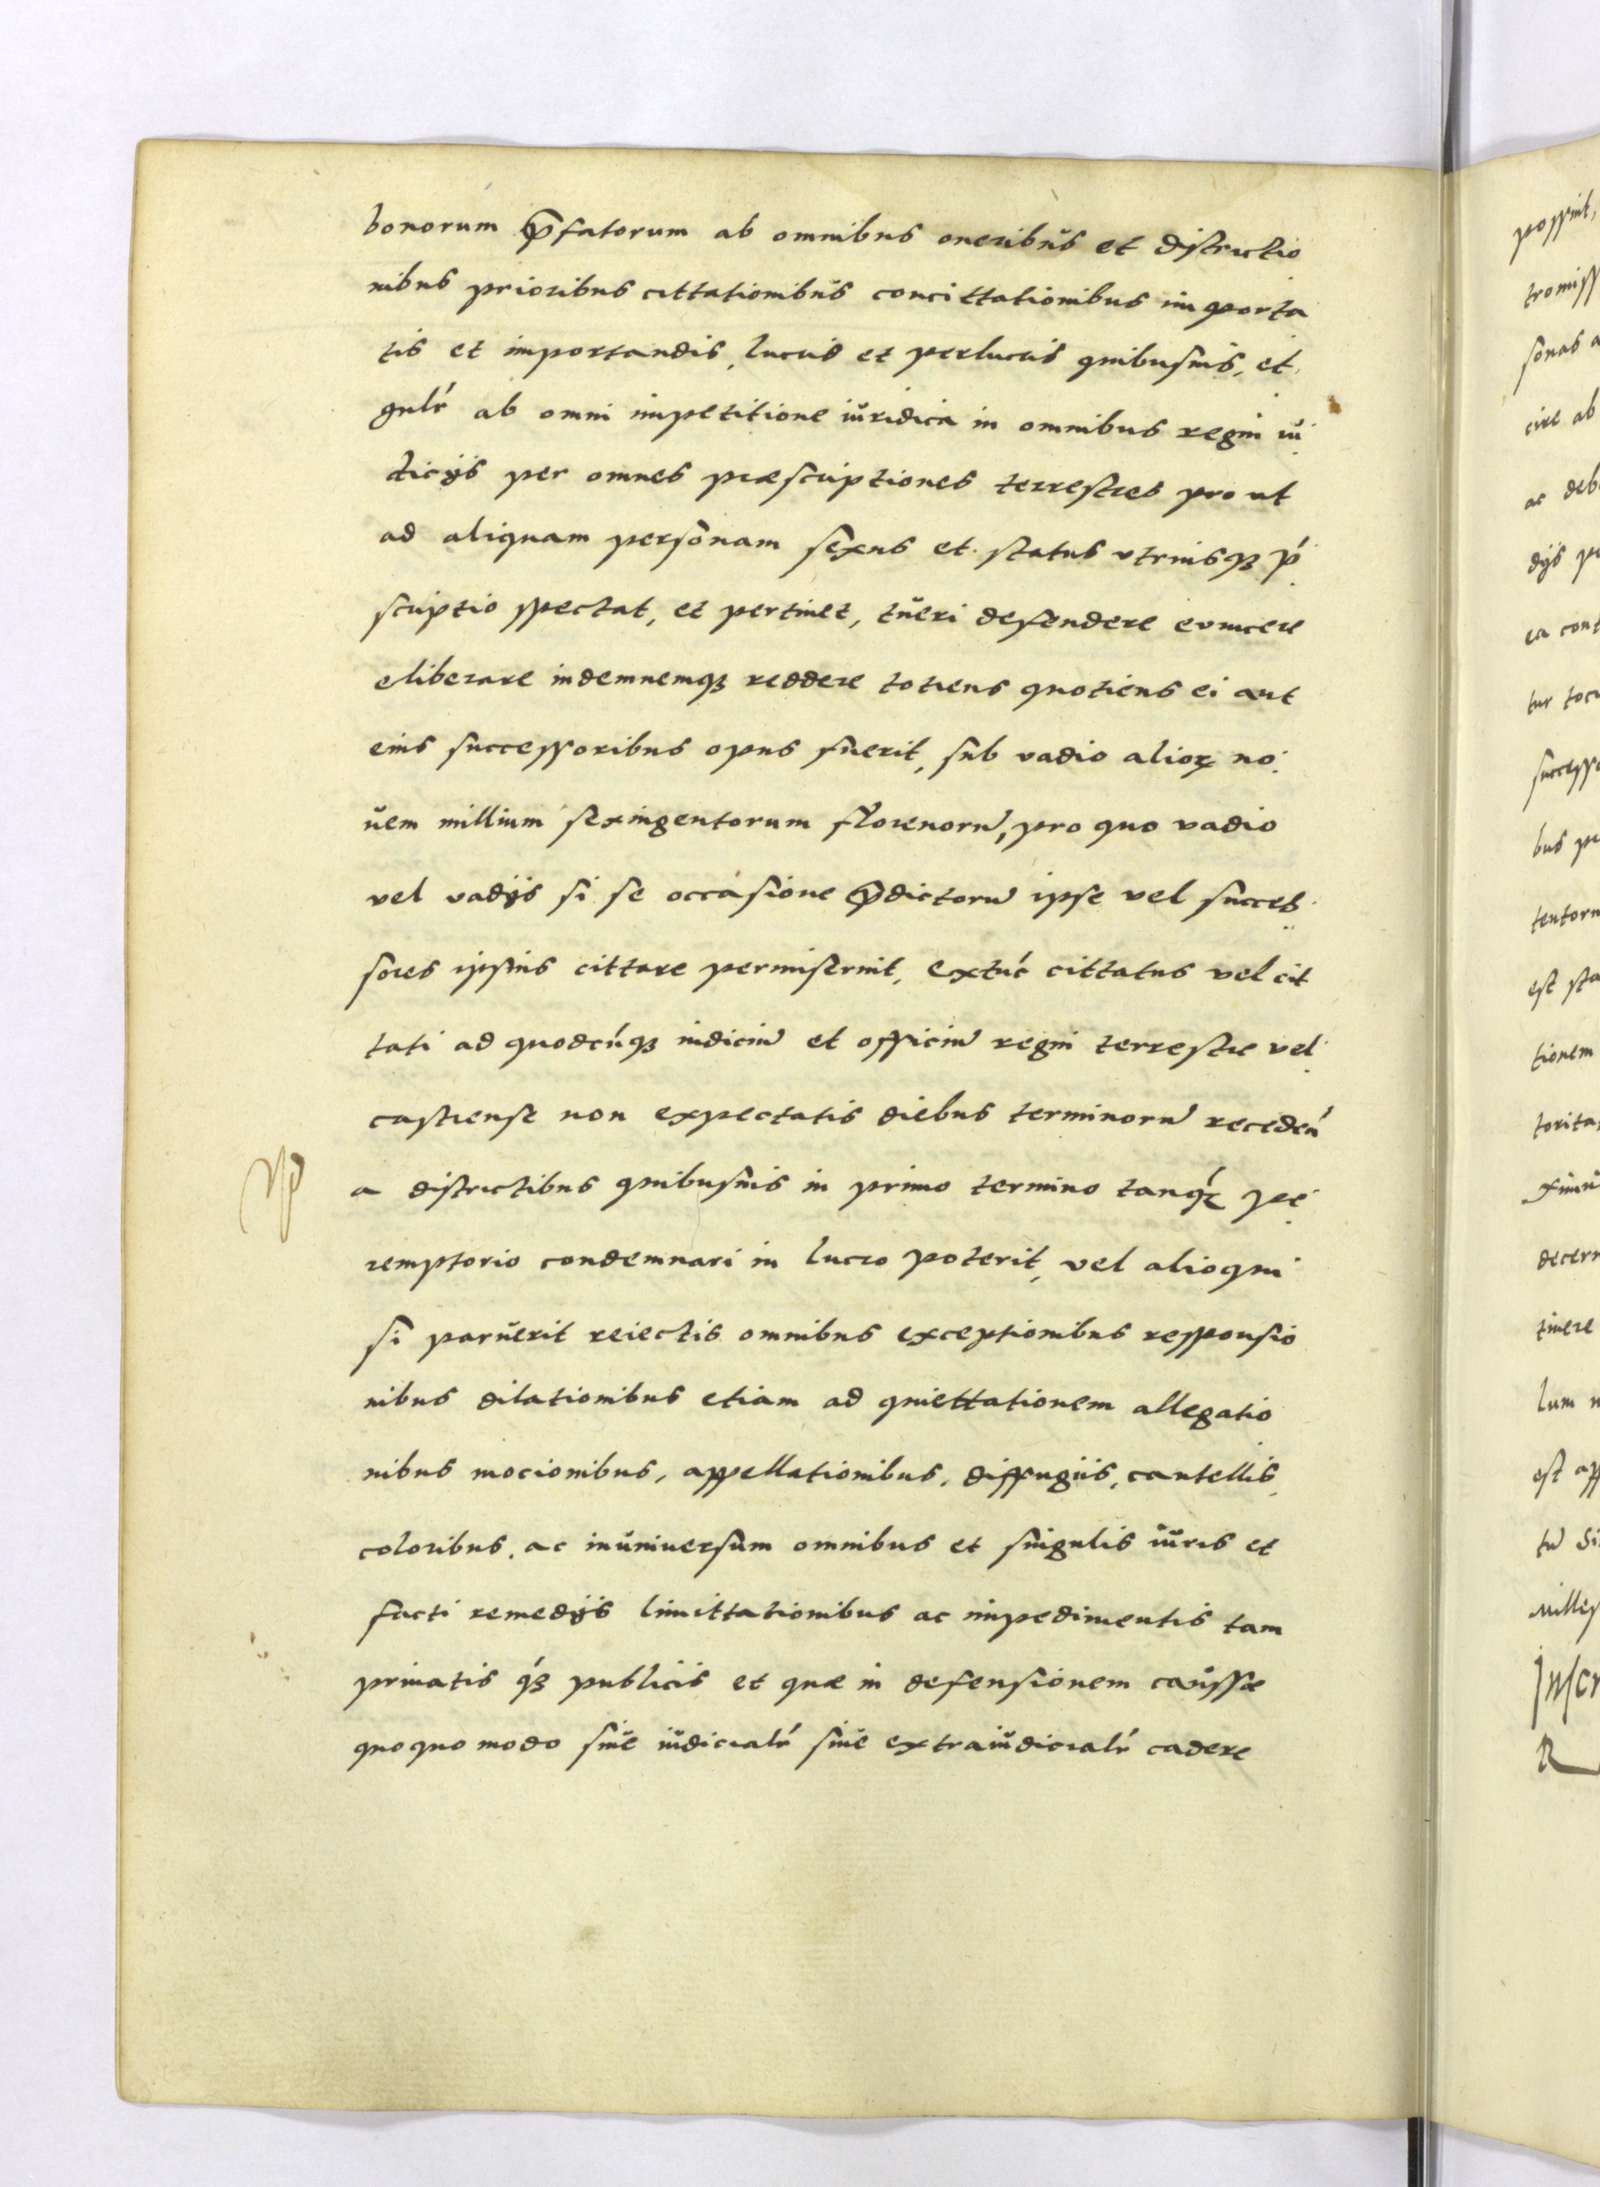 bonorum p̄fatorum ab omnibus oneribus et districtio
nibus prioribus cittationibus concittationibus importa
tis et importandis, lucris et perlucris quibusuis, et
gnlr̃ ab omni impetitione iuridica in omnibus regni iu
dicijs per omnes præscriptiones terrestres pro ut
ad aliquam personam sexus et status vtriusqȝ ṕ
scriptio spectat, et pertinet, tueri defendere euincere
eliberare indemnemqȝ reddere totiens quotiens ei aut
eius successoribus opus fuerit, sub vadio alioꝝ no
uem millium sexingentorum florenorũ, pro quo vadio
vel vadijs si se occasione p̄dictorũ ipse vel succes
sores ipsius cittare permiserint, extúc cittatus vel cit
tati ad quodcúqȝ iudiciũ et officiũ regni terrestre vel
castrense non expectatis diebus terminorũ recedeń
a districtibus quibusuis in primo termino tanqꝫ́ pe
remptorio condemnari in lucro poterit, vel alioqui
si paruerit reiectis omnibus exceptionibus responsio
nibus dilationibus etiam ad quiettationem allegatio
nibus mocionibus, appellationibus, diffugiis, cautellis,
coloribus, ac inuniuersum omnibus et singulis iuris et
facti remedijs limittationibus ac impedimentis tam
priuatis qȝ́ publicis et quæ in defensionem caussæ
quoquo modo siue iudicialr̃ siue extraiudicialr̃ cadere
possint,
tromiss
sonas a
cire ab
ac deb
dijs pe
ea cont
tur toci
success
bus p
tentoru
est sta
tionem
torita
decern
tinere
lum n
est app
tũ di
milles
Inscr